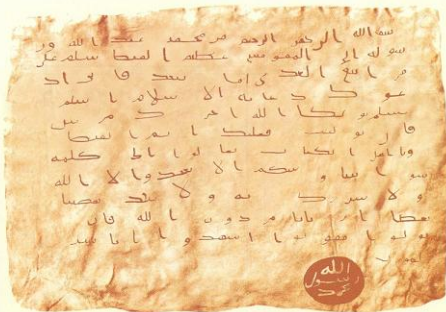 بسم الله الرحمن الرحيم من محمد عبد الله ور
سوله الى المقوقس عظيم القبط سلم على
من اتبع الهدى اما بعد فانى اد
عوك بدعاية الاسلام اسلم
تسلم يوتك الله اجرك مرتين
فان توليت فعليك اثم القبط
ويا اهل الكتاب تعالوا الى كلمة
سوا بيننا وبينكم الا نعبد الا الله
ولا نشرك به ولا يتخذ بعضنا
بعضا اربابا من دون الله فان
تولوا فقولوا اشهدوا بانا مسلـ
مون
الله
رسول
محمد